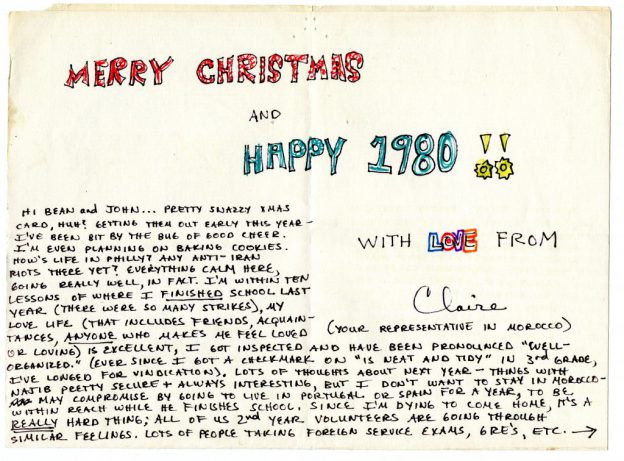 MERRY CHRISTMAS
AND
HAPPY 1980!!
WITH LOVE FROM
Claire
(YOUR REPRESENTATIVE IN MOROCCO)
HI BEAN and JOHN... PRETTY SNAZZY XMAS
CARD, HUH? GETTING THEM OUT EARLY THIS YEAR –
I'VE BEEN BIT BY THE BUG OF GOOD CHEER.
I'M EVEN PLANNING ON BAKING COOKIES.
HOW'S LIFE IN PHILLY? ANY ANTI-IRAN
RIOTS THERE YET? EVERYTHING CALM HERE,
GOING REALLY WELL, IN FACT. I'M WITHIN TEN
LESSONS OF WHERE I FINISHED SCHOOL LAST
YEAR (THERE WERE SO MANY STRIKES), MY
LOVE LIFE (THAT INCLUDES FRIENDS, ACQUAIN-
TANCES, ANYONE WHO MAKES ME FEEL LOVED
OR LOVING) IS EXCELLENT, I GOT INSPECTED AND HAVE BEEN PRONOUNCED "WELL-
ORGANIZED." (EVER SINCE I GOT A CHECKMARK ON "IS NEAT AND TIDY" IN 3rd GRADE,
I'VE LONGED FOR VINDICATION). LOTS OF THOUGHTS ABOUT NEXT YEAR – THINGS WITH
NAJIB PRETTY SECURE + ALWAYS INTERESTING, BUT I DON'T WANT TO STAY IN MOROCCO –
MAY COMPROMISE BY GOING TO LIVE IN PORTUGAL OR SPAIN FOR A YEAR, TO BE
WITHIN REACH WHILE HE FINISHES SCHOOL. SINCE I'M DYING TO COME HOME, IT'S A
REALLY HARD THING; ALL OF US 2nd YEAR VOLUNTEERS ARE GOING THROUGH
SIMILAR FEELINGS. LOTS OF PEOPLE TAKING FOREIGN SERVICE EXAMS, GRE'S, ETC. →